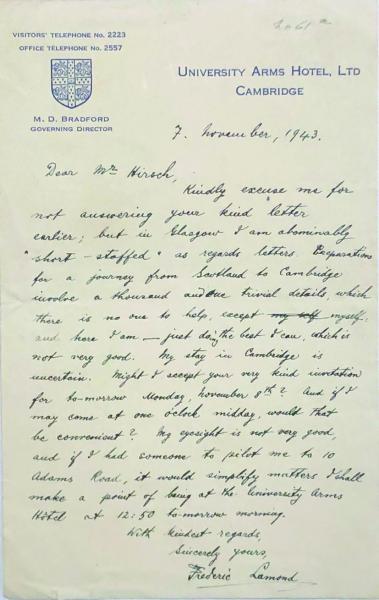 VISITORS' TELEPHONE No. 2223
OFFICE TELEPHONE No. 2557
M. D. BRADFORD
GOVERNING DIRECTOR
UNIVERSITY ARMS HOTEL, LTD
CAMBRIDGE
7. November, 1943.
Dear Mr. Hirsch,
Kindly excuse me for
not answering your kind letter
earlier; but in Glasgow I am abominably
"short-staffed" as regards letters. Preparations
for a journey from Scotland to Cambridge
involve a thousand and one trivial details, which
there is no one to help, except my self myself,
and here I am — just do the best I can, which is
not very good. My stay in Cambridge is
uncertain. Might I accept your very kind invitation
for to-morrow Monday, November 8th? And if I
may come at one o'clock midday, would that
be convenient? My eyesight is not very good,
and if I had someone to pilot me to 10
Adams Road, it would simplify matters I shall
make a point of being at the University Arms
Hotel at 12:50 to-morrow morning.
With kindest regards,
Sincerely yours,
Frederic Lamond